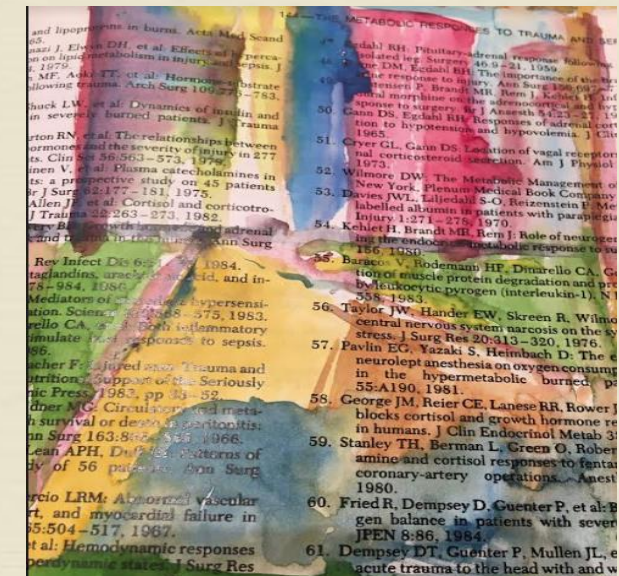 144—THE METABOLIC RESPONSES TO TRAUMA AND
and lipoproteins in burns. Acta Med Scand
65.
nazi J, Elwyn DH, et al: Effects of hyperca-
on on lipid metabolism in injury and sepsis. J
, 1979.
n MF, Aoki TT, et al: Hormone-substrate
llowing trauma. Arch Surg 109:776–783,
huck LW, et al: Dynamics of insulin and
in severely burned patients. J Trauma
rton RN, et al: The relationships between
ormones and the severity of injury in 277
ts. Clin Sci 56:563–573, 1979.
inen V, et al: Plasma catecholamines in
ts: a prospective study on 45 patients
r J Surg 62:177–181, 1975.
Allen JP, et al: Cortisol and corticotro-
J Trauma 22:263–273, 1982.
Growth and adrenal
and Ann Surg
Rev Infect Dis 1984.
taglandins, acid, and in-
78–984, 1986
Mediators of hypersensi-
ation. Science 575, 1983.
rello CA, Both inflammatory
imulate responses to sepsis.
86.
acher F: Injured man: Trauma and
utrition Support of the Seriously
nic Press, 1983, pp 33–52.
dner MG: Circulatory and meta-
h survival or death in peritonitis:
nn Surg 163:866 1966.
Lean APH, Patterns of
dy of 56 patients. Ann Surg
rcio LRM: Abnormal vascular
rt, and myocardial failure in
55:504–517, 1967.
et al: Hemodynamic responses
perdynamic states. J Surg Res
gdahl RH: Pituitary-adrenal response following
isolated leg. Surgery 46:9–21, 1959.
ne DM, Egdahl RH: The importance of the
ne response to injury. Ann Surg
tensen P, Brandt MR, Rem J, Kehlet H:
ral morphine on the adrenocortical and
sponse to surgery. Br J Anaesth 54:23–27,
50. Gann DS, Egdahl RH: Responses of adrenal
tion to hypotension and hypovolemia. J
1965.
51. Cryer GL, Gann DS: Location of vagal receptors
nal corticosteroid secretion. Am J Physiol
1973.
52. Wilmore DW: The Metabolic Management of
New York, Plenum Medical Book Company
53. Davies JWL, Liljedahl S-O, Reizenstein P: Me
labelled albumin in patients with paraplegia
Injury 1:271–278, 1970.
54. Kehlet H, Brandt MR, Rem J: Role of neurogen
ing the endocrine-metabolic response to su
156, 1980.
55. Baracos Rodemann HP, Dinarello CA, Go
tion of muscle protein degradation and pro
by leukocytic pyrogen (interleukin-1). N
558, 1983.
56. Taylor JW, Hander EW, Skreen R, Wilmo
central nervous system narcosis on the sy
stress. J Surg Res 20:313–320, 1976.
57. Pavlin EG, Yazaki S, Heimbach D: The e
neurolept anesthesia on oxygen consump
in the hypermetabolic burned, pa
55:A190, 1981.
58. George JM, Reier CE, Lanese RR, Rower J
blocks cortisol and growth hormone re
in humans. J Clin Endocrinol Metab 3
59. Stanley TH, Berman L, Green O, Rober
amine and cortisol responses to fentan
coronary-artery operations. Anest
1980.
60. Fried R, Dempsey D, Guenter P, et al: B
gen balance in patients with sever
JPEN 8:86, 1984.
61. Dempsey DT, Guenter P, Mullen JL, e
acute trauma to the head with and w